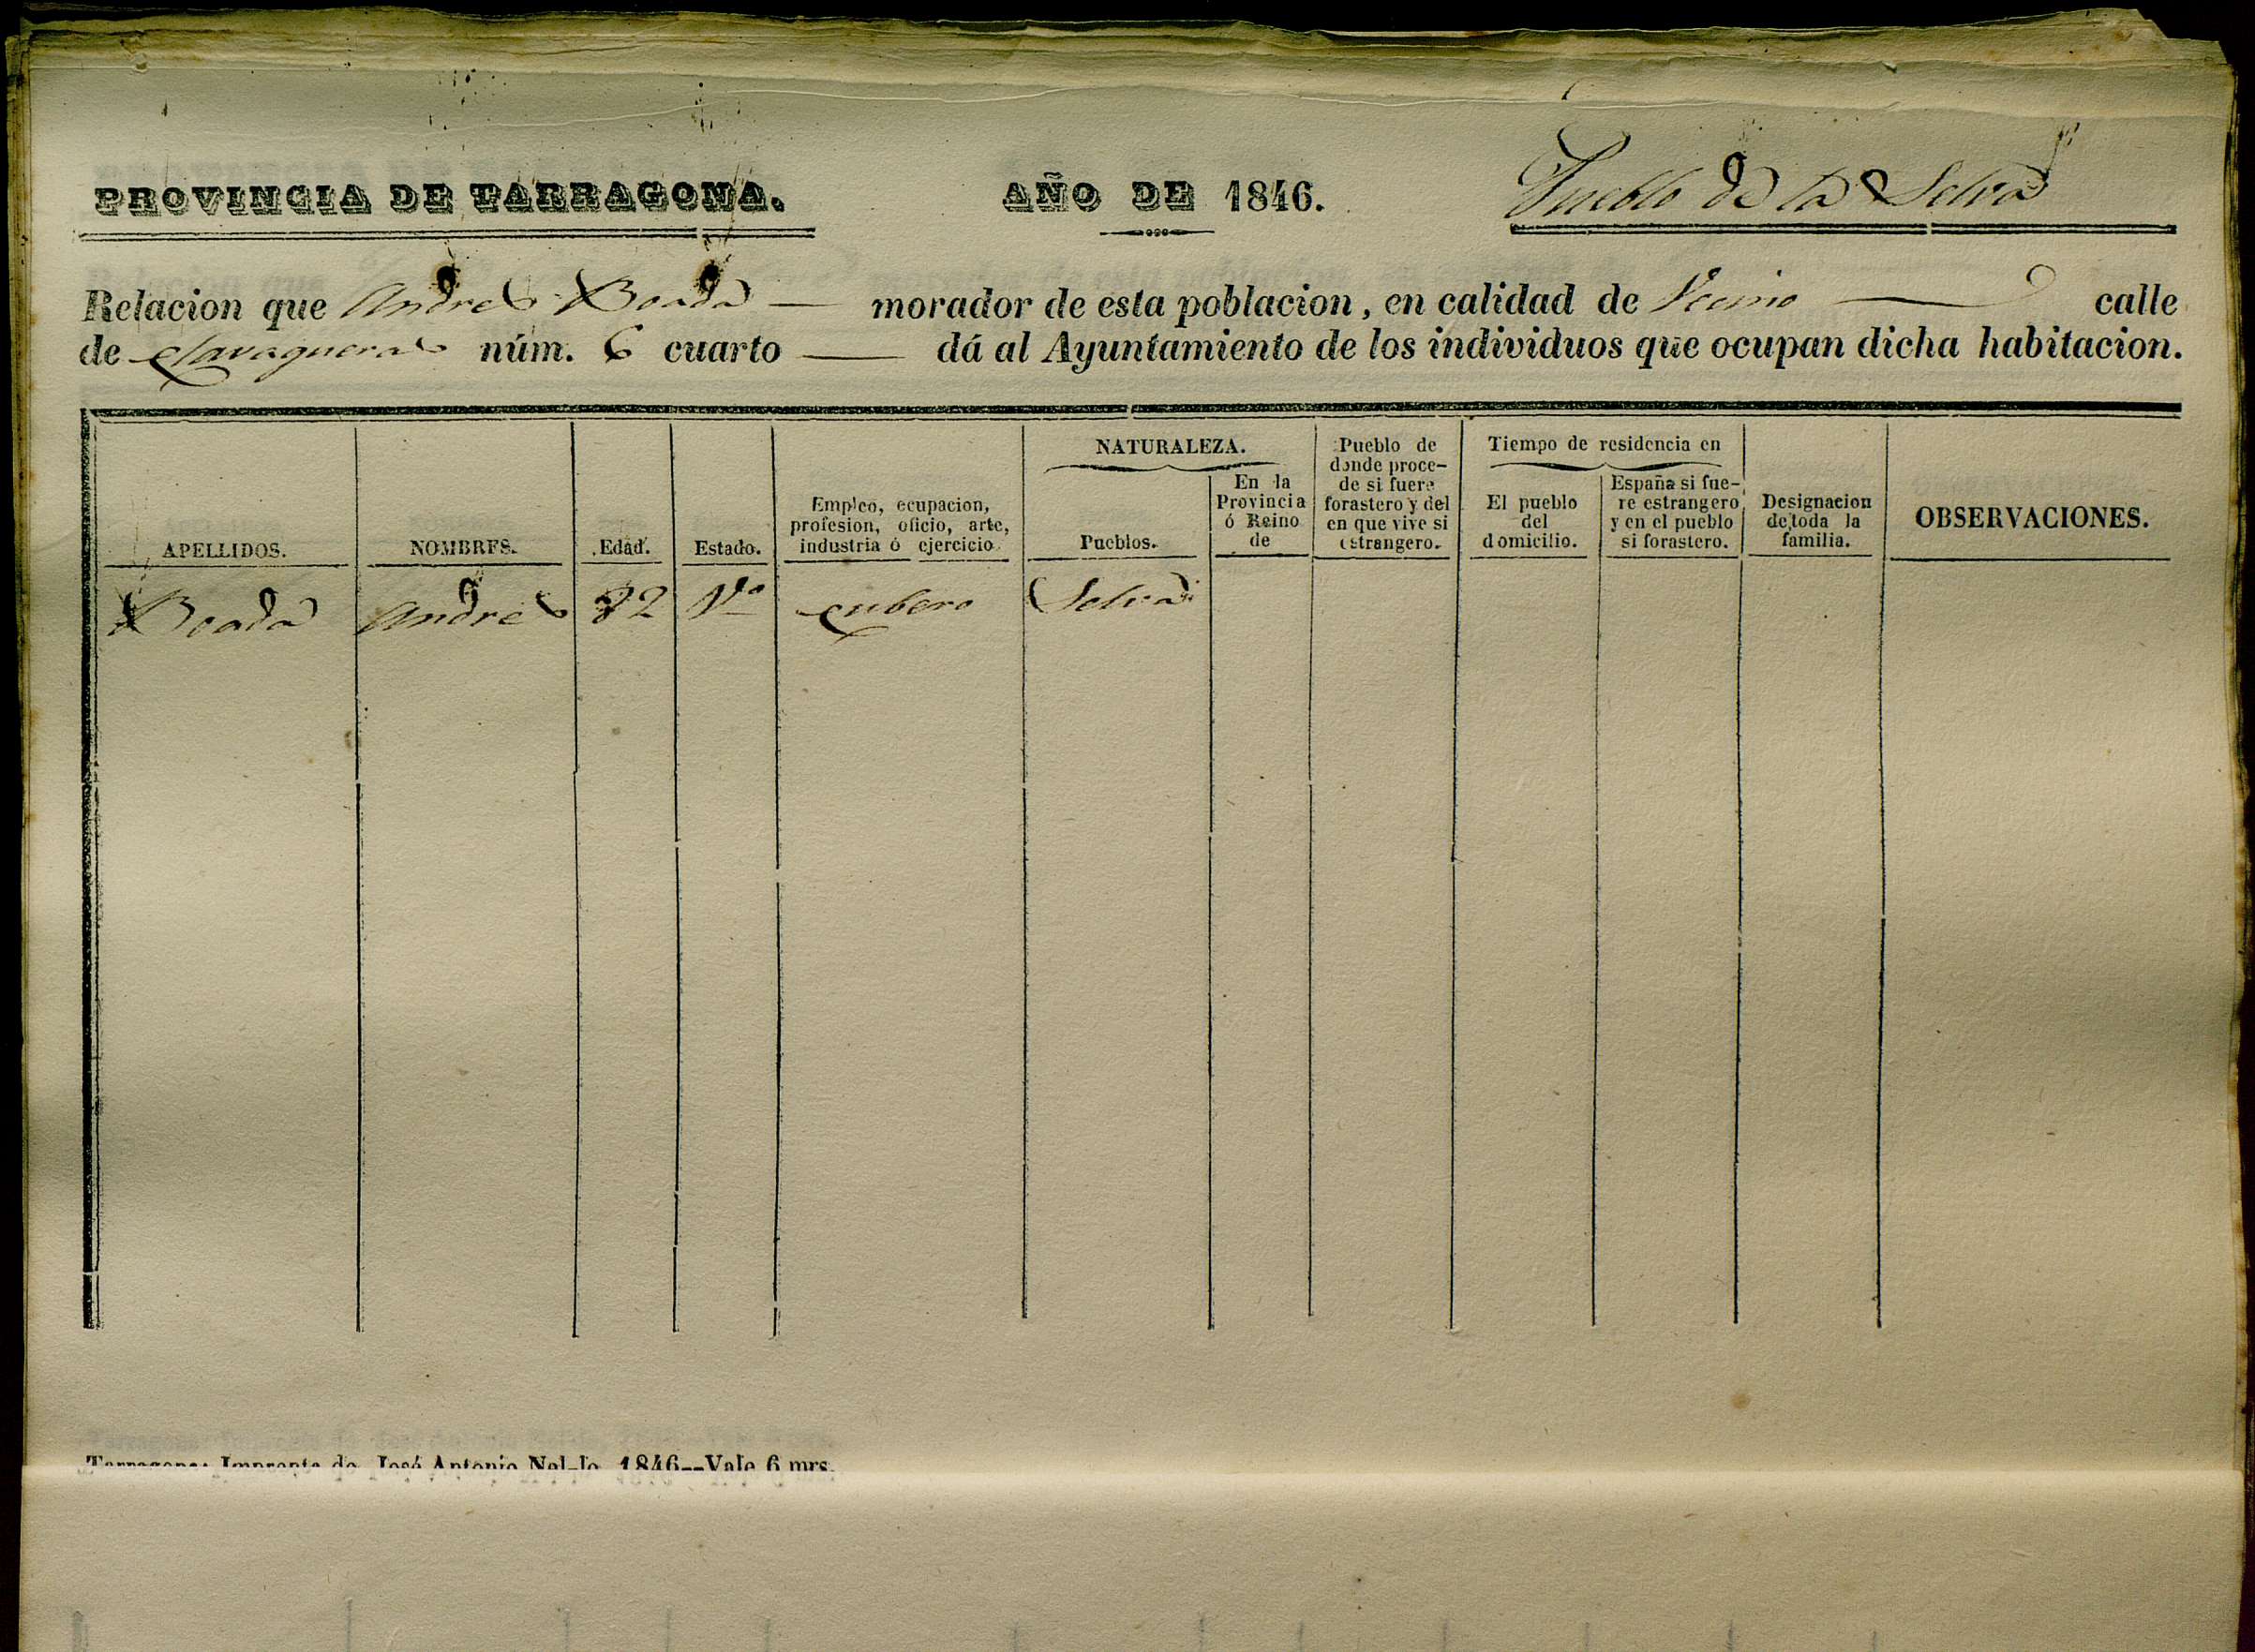 PROVINCIA DE TARRAGONA. AÑO DE 1846. Pueblo de la Selva
Relacion que Andres Boada morador de esta poblacion, en calidad de Vecino calle
de núm. 6 cuarto dá al Ayuntamiento de los individuos que ocupan dicha habitacion.
APELLIDOS.
NOMBRES.
Edad.
Estado.
Empleo, ocupacion,
profesion, oficio, arte,
industria ó ejercicio.
NATURALEZA.
Pueblos.
En la
Provincia
ó Reino
de
Pueblo de
donde proce-
de si fuere
forastero y del
en que vive si
estrangero.
Tiempo de residencia en
El pueblo
del
domicilio.
España si fue-
re estrangero
y en el pueblo
si forastero.
Designacion
de toda la
familia.
OBSERVACIONES.
Boada Andres 82 Vo cubero Selva
Tarragona: Imprenta de José Antonio Nel-lo 1846--Vale 6 mrs.